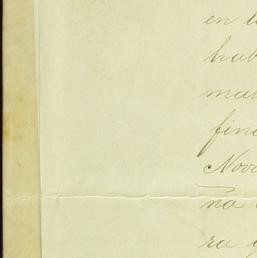 en l
hab
ma
fin
Nov
na
ra y